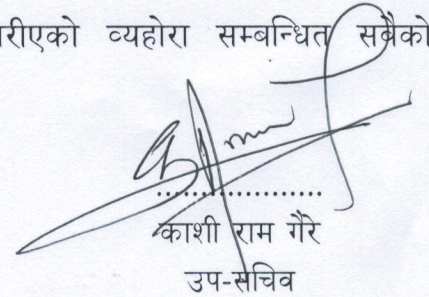 रीएको व्यहोरा सम्बन्धित सबैको
....................
काशी राम गैरे
उप-सचिव